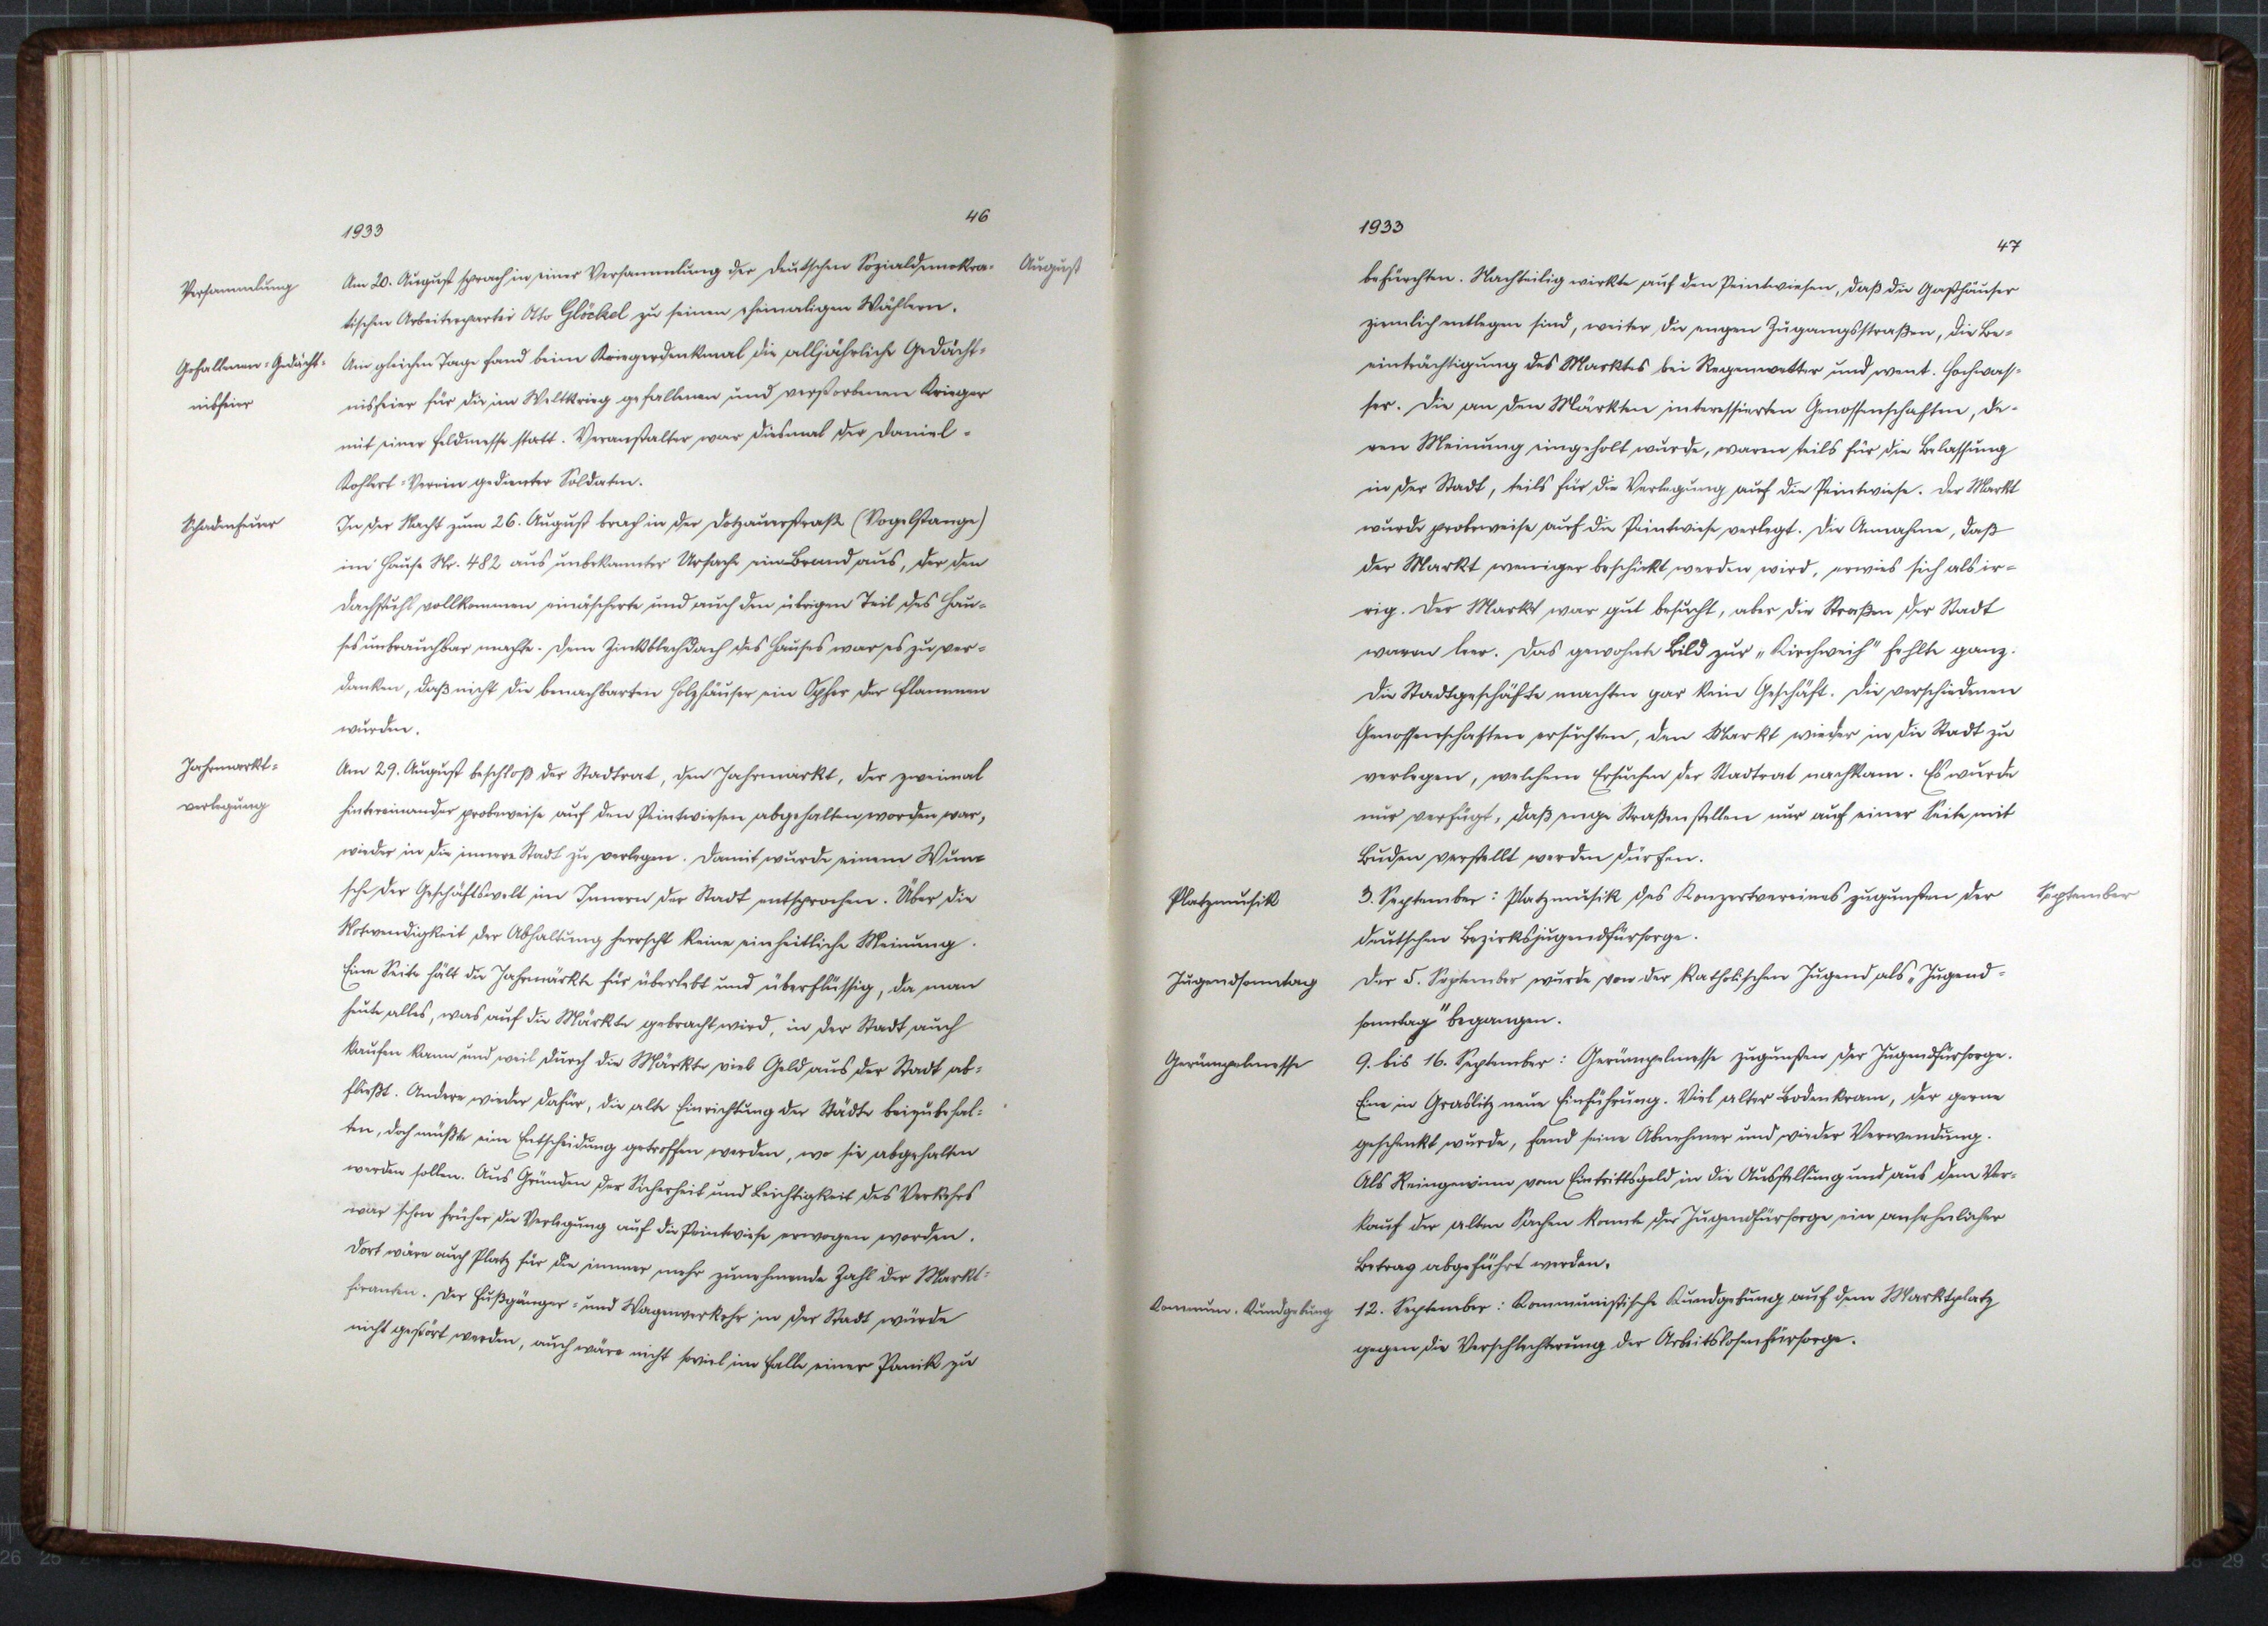 1933
46
August
Versammlung
Am 20. August sprach in einer Versammlung der deutschen Sozialdemokra-
tischen Arbeiterpartei Otto Glöckel zu seinen ehemaligen Wählern.
Gefallenen-Gedächt-
nisfeier
Am gleichen Tage fand beim Kriegerdenkmal die alljährliche Gedächt-
nisfeier für die im Weltkrieg gefallenen und verstorbenen Krieger
mit einer Feldmesse statt. Veranstalter war diesmal der Daniel-
Kohlert-Verein gedienter Soldaten.
Schadenfeuer
In der Nacht zum 26. August brach in der Dotzauerstraße (Vogelstange)
im Hause Nr. 482 aus unbekannter Ursache ein Brand aus, der den
Dachstuhl vollkommen einäscherte und auch den übrigen Teil des Hau-
ses unbrauchbar machte. Dem Zinkblechdach des Hauses war es zu ver-
danken, daß nicht die benachbarten Holzhäuser ein Opfer der Flammen
wurden.
Jahrmarkt-
verlegung
Am 29. August beschloß der Stadtrat, den Jahrmarkt, der zweimal
hintereinander probeweise auf den Peintwiesen abgehalten worden war,
wieder in die innere Stadt zu verlegen. Damit wurde einem Wun-
sche der Geschäftswelt im Innern der Stadt entsprochen. Über die
Notwendigkeit der Abhaltung herrscht keine einheitliche Meinung.
Eine Seite hält die Jahrmärkte für überlebt und überflüssig, da man
heute alles, was auf die Märkte gebracht wird, in der Stadt auch
kaufen kann und weil durch die Märkte viel Geld aus der Stadt ab-
fließt. Andere wieder dafür, die alte Einrichtung der Städte beizubehal-
ten, doch müßte eine Entscheidung getroffen werden, wo sie abgehalten
werden sollen. Aus Gründen der Sicherheit und Leichtigkeit des Verkehrs
war schon früher die Verlegung auf die Peintwiese erwogen worden.
Dort wäre auch Platz für die immer mehr zunehmende Zahl der Markt-
fieranten. Der Fußgänger- und Wagenverkehr in der Stadt würde
nicht gestört werden, auch wäre nicht soviel im Falle einer Panik zu
1933
47
befürchten. Nachteilig wirkte auf den Peintwiesen, daß die Gasthäuser
ziemlich entlegen sind, weiter die engen Zugangsstraßen, die Be-
einträchtigung des Marktes bei Regenwetter und event. Hochwas-
ser. Die an den Märkten interessierten Genossenschaften, de-
ren Meinung eingeholt wurde, waren teils für die Belassung
in der Stadt, teils für die Verlegung auf die Peintwiese. Der Markt
wurde probeweise auf die Peintwiese verlegt. Die Annahme, daß
der Markt weniger beschickt werden wird, erwies sich als ir-
rig. Der Markt war gut besucht, aber die Straßen der Stadt
waren leer. Das gewohnte Bild zur „Kirchweih" fehlte ganz.
Die Stadtgeschäfte machten gar kein Geschäft. Die verschiedenen
Genossenschaften ersuchten, den Markt wieder in die Stadt zu
verlegen, welchem Ersuchen der Stadtrat nachkam. Es wurde
nur verfügt, daß enge Straßenstellen nur auf einer Seite mit
Buden verstellt werden dürfen.
Platzmusik
3. September: Platzmusik des Konzertvereines zugunsten der
September
deutschen Bezirksjugendfürsorge.
Jugendsonntag
Der 5. September wurde von der katholischen Jugend als „Jugend-
sonntag" begangen.
Gerümpelmesse
9. bis 16. September: Gerümpelmesse zugunsten der Jugendfürsorge.
Eine in Graslitz neue Einführung. Viel alter Bodenkram, der gerne
geschenkt wurde, fand seine Abnehmer und wieder Verwendung.
Als Reingewinn vom Eintrittsgeld in die Ausstellung und aus dem Ver-
kauf der alten Sachen konnte der Jugendfürsorge ein ansehnlicher
Betrag abgeführt werden.
Kommun. Kundgebung
12. September: Kommunistische Kundgebung auf dem Marktplatz
gegen die Verschlechterung der Arbeitslosenfürsorge.